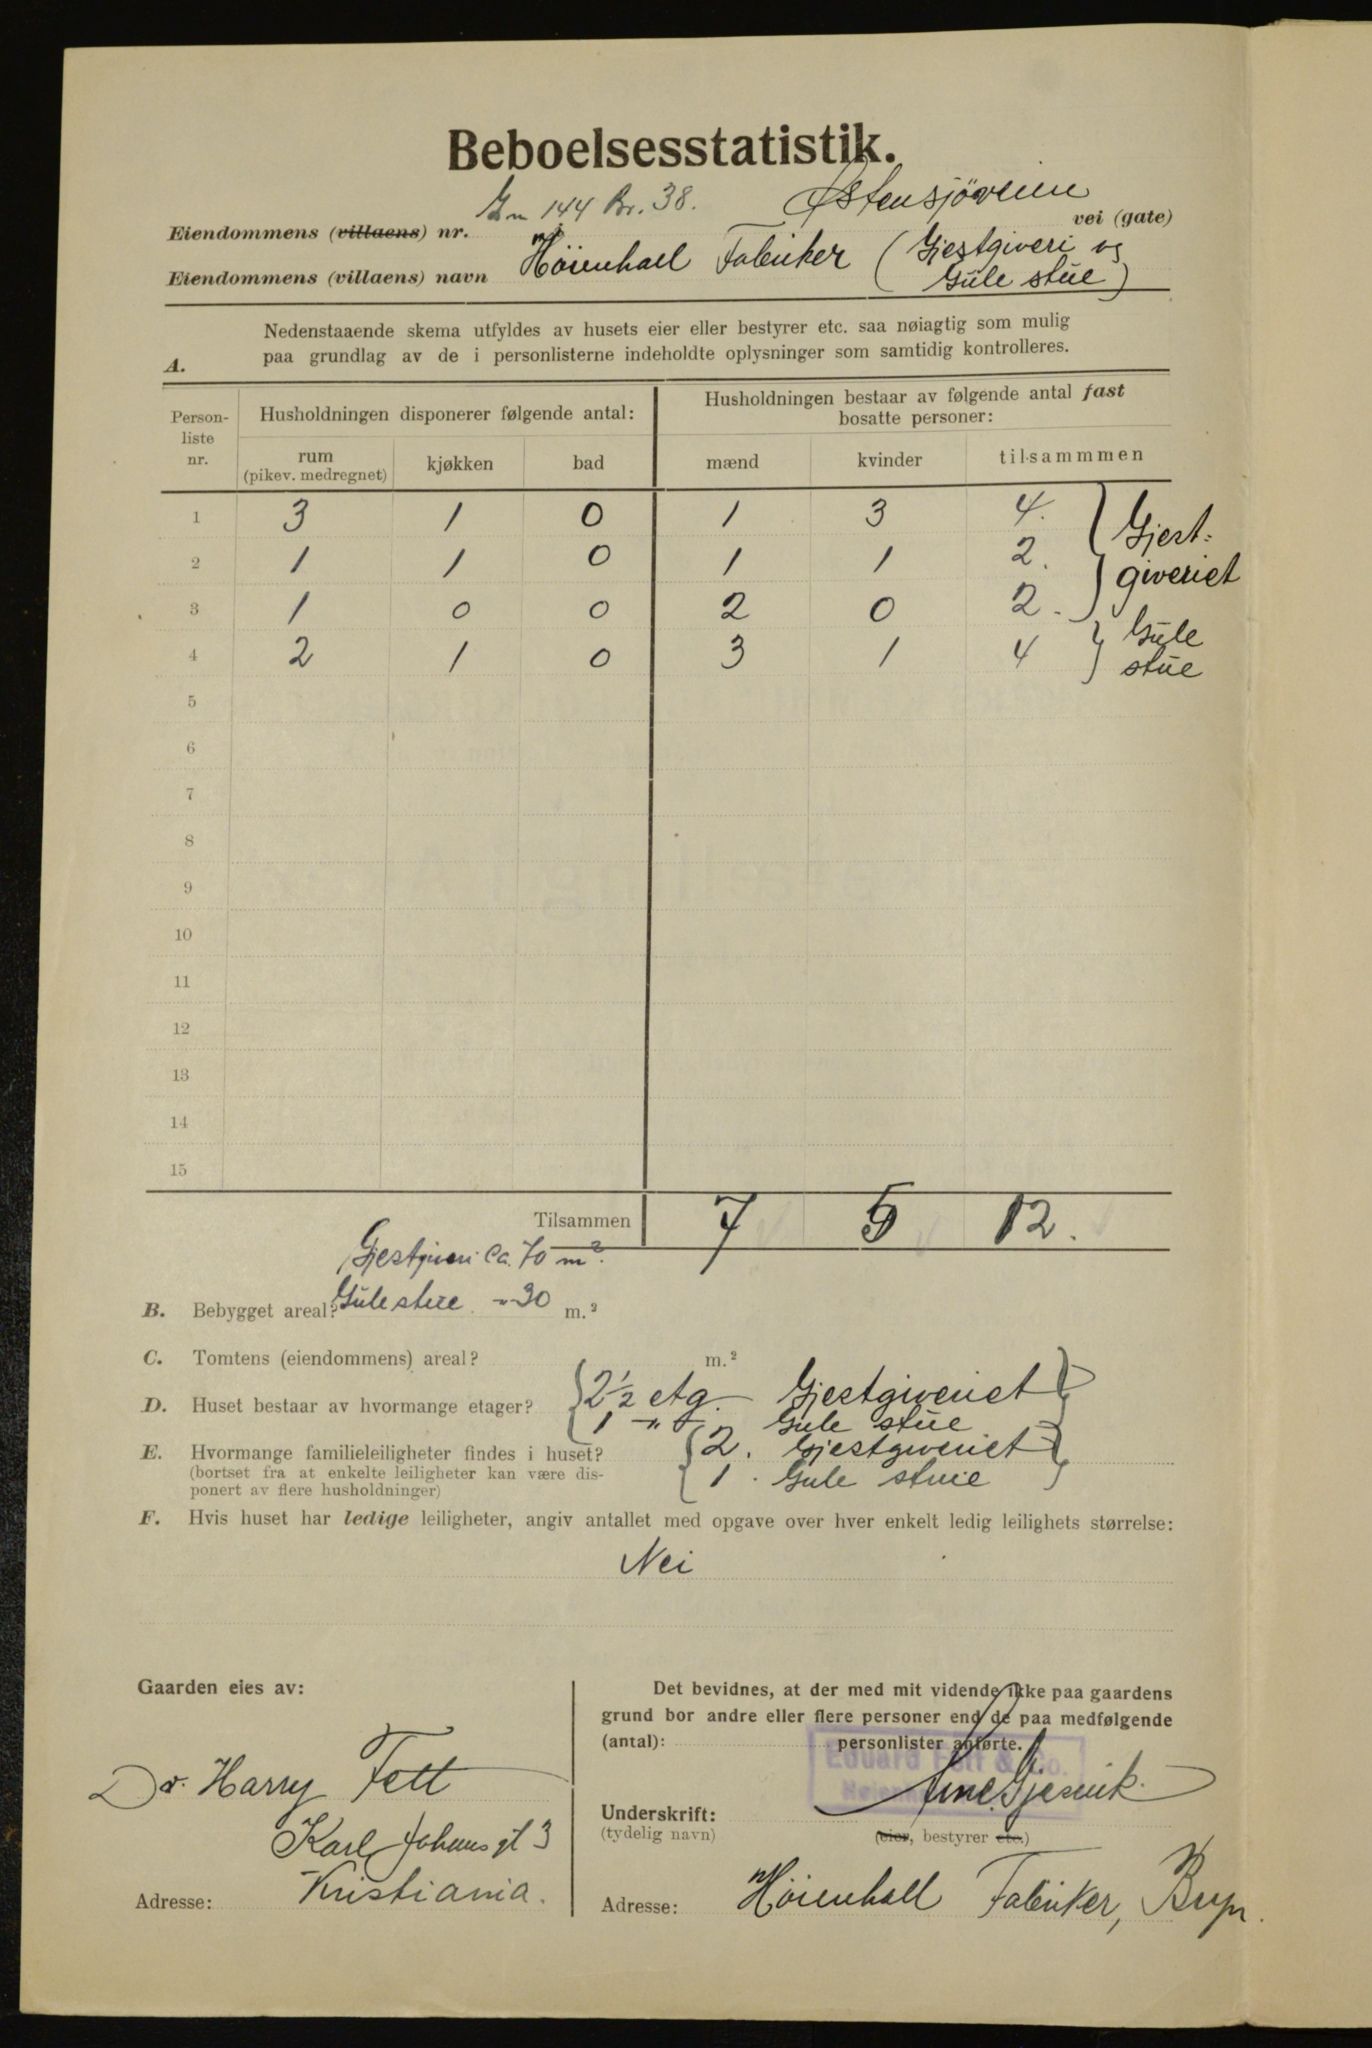 Beboelsesstatistik.
Gn 144 Br. 38. Østensjöveien
Eiendommens (villaens) nr. vei (gate)
Eiendommens (villaens) navn Höienhall Fabriker (Gjestgiveri og
Gule stue)
Nedenstaaende skema utfyldes av husets eier eller bestyrer etc. saa nøiagtig som mulig
A. paa grundlag av de i personlisterne indeholdte oplysninger som samtidig kontrolleres.
Person-liste nr. Husholdningen disponerer følgende antal: Husholdningen bestaar av følgende antal fast bosatte personer:
rum (pikev. medregnet) kjøkken bad mænd kvinder tilsammmen
1 3 1 0 1 3 4. Gjest-
2 1 1 0 1 1 2. giveriet
3 1 0 0 2 0 2.
4 2 1 0 3 1 4 Gule stue
5
6
7
8
9
10
11
12
13
14
15
Tilsammen 7 5 12.
Gjestgiveri ca. 70 m².
B. Bebygget areal? Gule stue " 30 m.²
C. Tomtens (eiendommens) areal? m.²
D. Huset bestaar av hvormange etager? 2½ etg. Gjestgiveriet
1 " - Gule stue
E. Hvormange familieleiligheter findes i huset? 2. Gjestgiveriet
(bortset fra at enkelte leiligheter kan være dis- 1. Gule stue
ponert av flere husholdninger)
F. Hvis huset har ledige leiligheter, angiv antallet med opgave over hver enkelt ledig leilighets størrelse:
Nei
Gaarden eies av:
Dr. Harry Fett
Karl Johans gt 3
Adresse: Kristiania.
Det bevidnes, at der med mit vidende ikke paa gaardens
grund bor andre eller flere personer end de paa medfølgende
(antal): personlister anførte.
Eduard Fett & Co.
Underskrift: Arne Gjesvik.
(tydelig navn) (eier, bestyrer etc.)
Adresse: Höienhall Fabriker, Bryn.